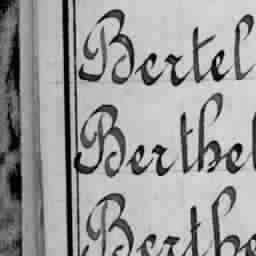 Bertel
Berthel
Berthe